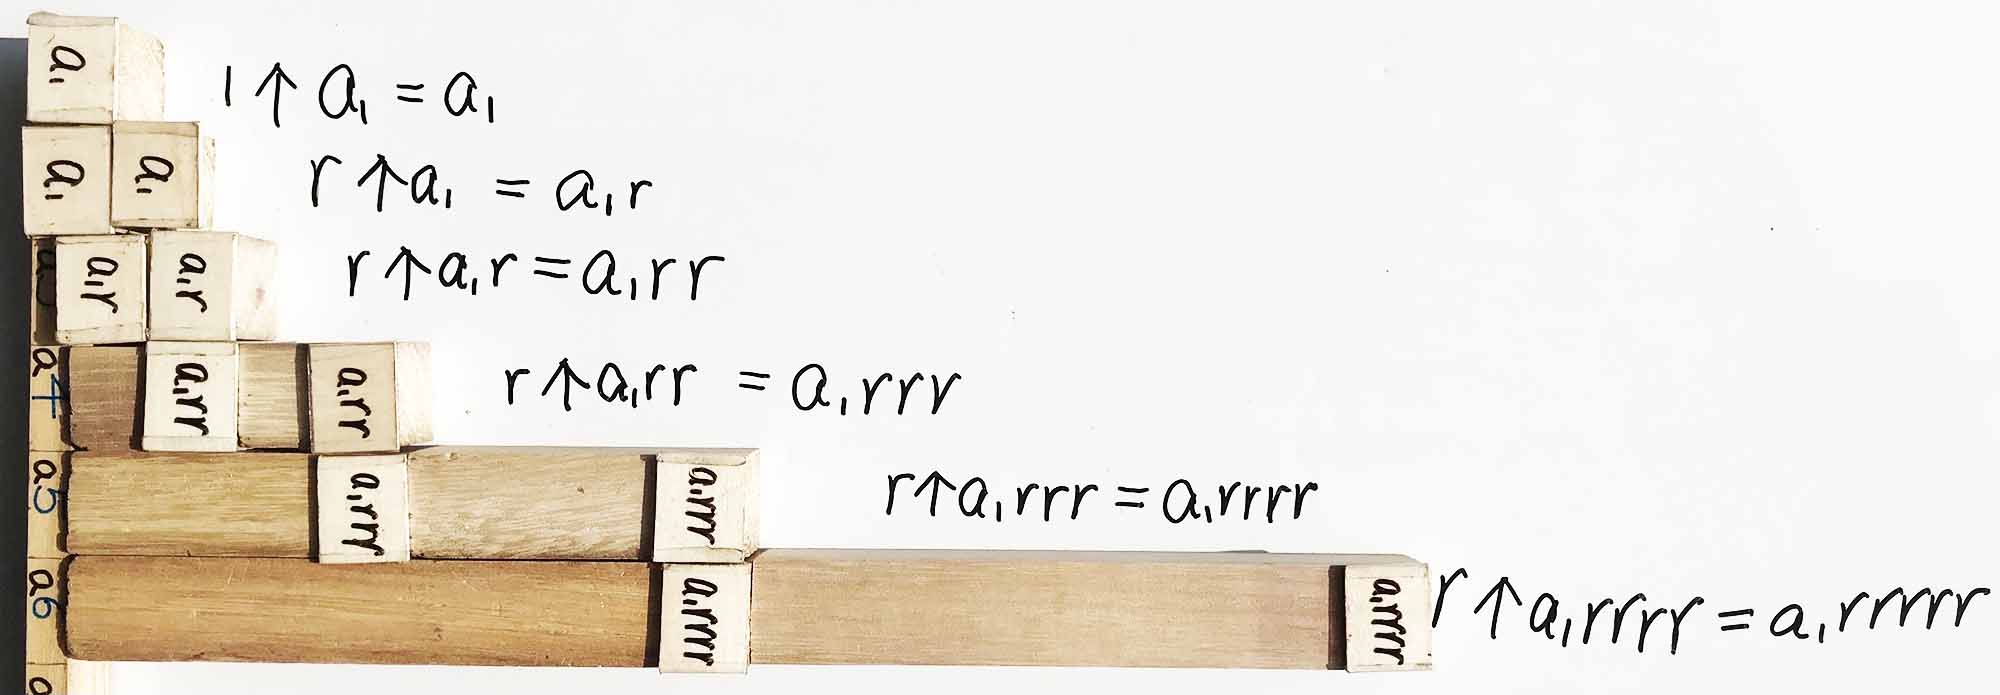 a₁ 1 ↑ a₁ = a₁
a₁ a₁ r ↑ a₁ = a₁r
a₁r a₁r r ↑ a₁r = a₁rr
a4 a₁rr a₁rr r ↑ a₁rr = a₁rrr
a5 a₁rrr a₁rrr r ↑ a₁rrr = a₁rrrr
a6 a₁rrrr a₁rrrr r ↑ a₁rrrr = a₁rrrrr